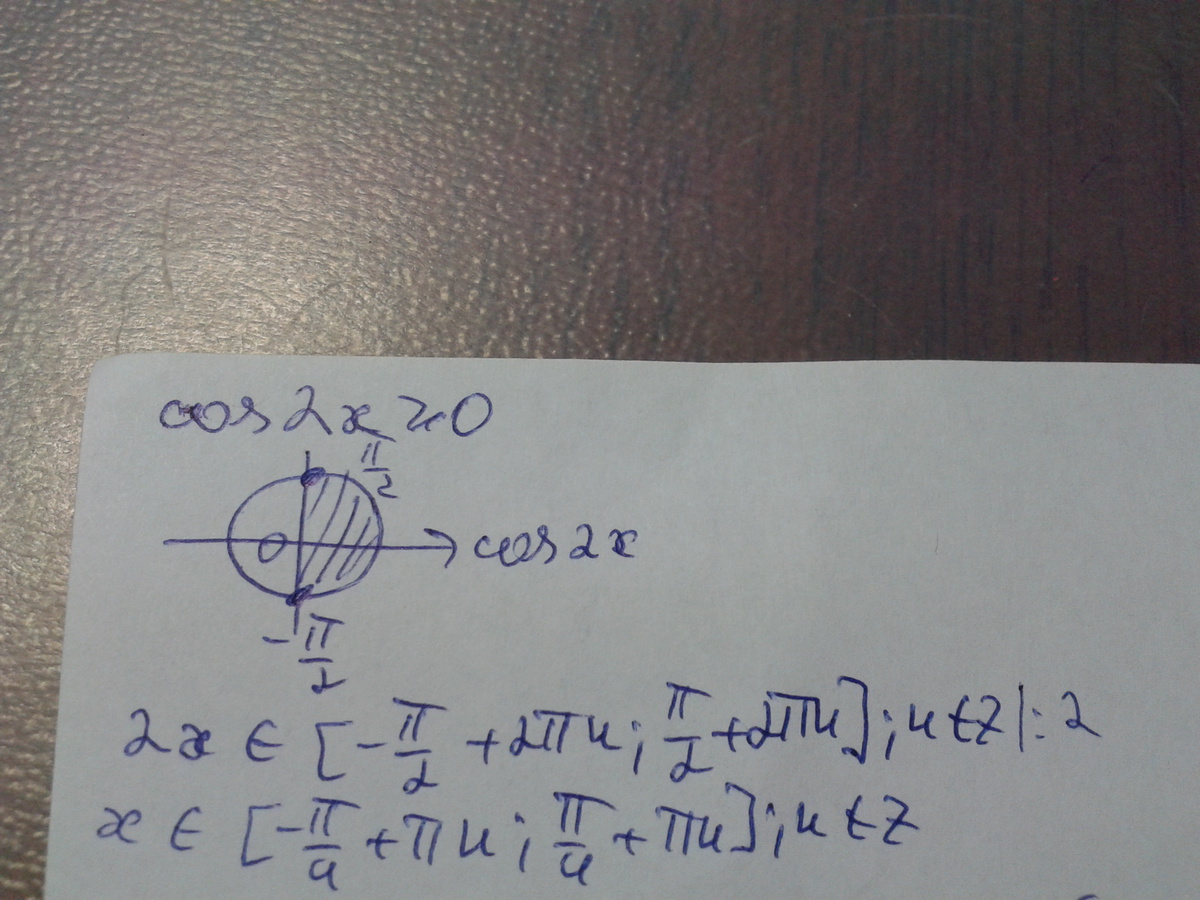 cos2x≥0
π/2
0
cos2x
-π/2
2x ∈ [-π/2 +2πn; π/2+2πn]; n∈Z |:2
x ∈ [-π/4 +πn; π/4 +πn]; n∈Z